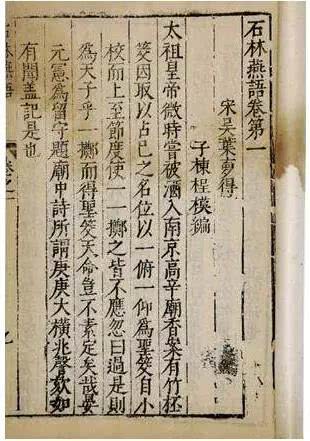 石林燕語卷第一
宋吳葉夢得
子棟桯模編
太祖皇帝微時嘗被酒入南京高辛廟香案有竹桮
筊因取以占已之名位以一俯一仰為聖筊自小
校而上至節度使一一擲之皆不應忽曰過是則
為天子乎一擲而得聖筊天命豈不素定矣哉晏
元憲為留守題廟中詩所謂庚庚大橫兆謦欬如
有聞盖記是也
石林燕語